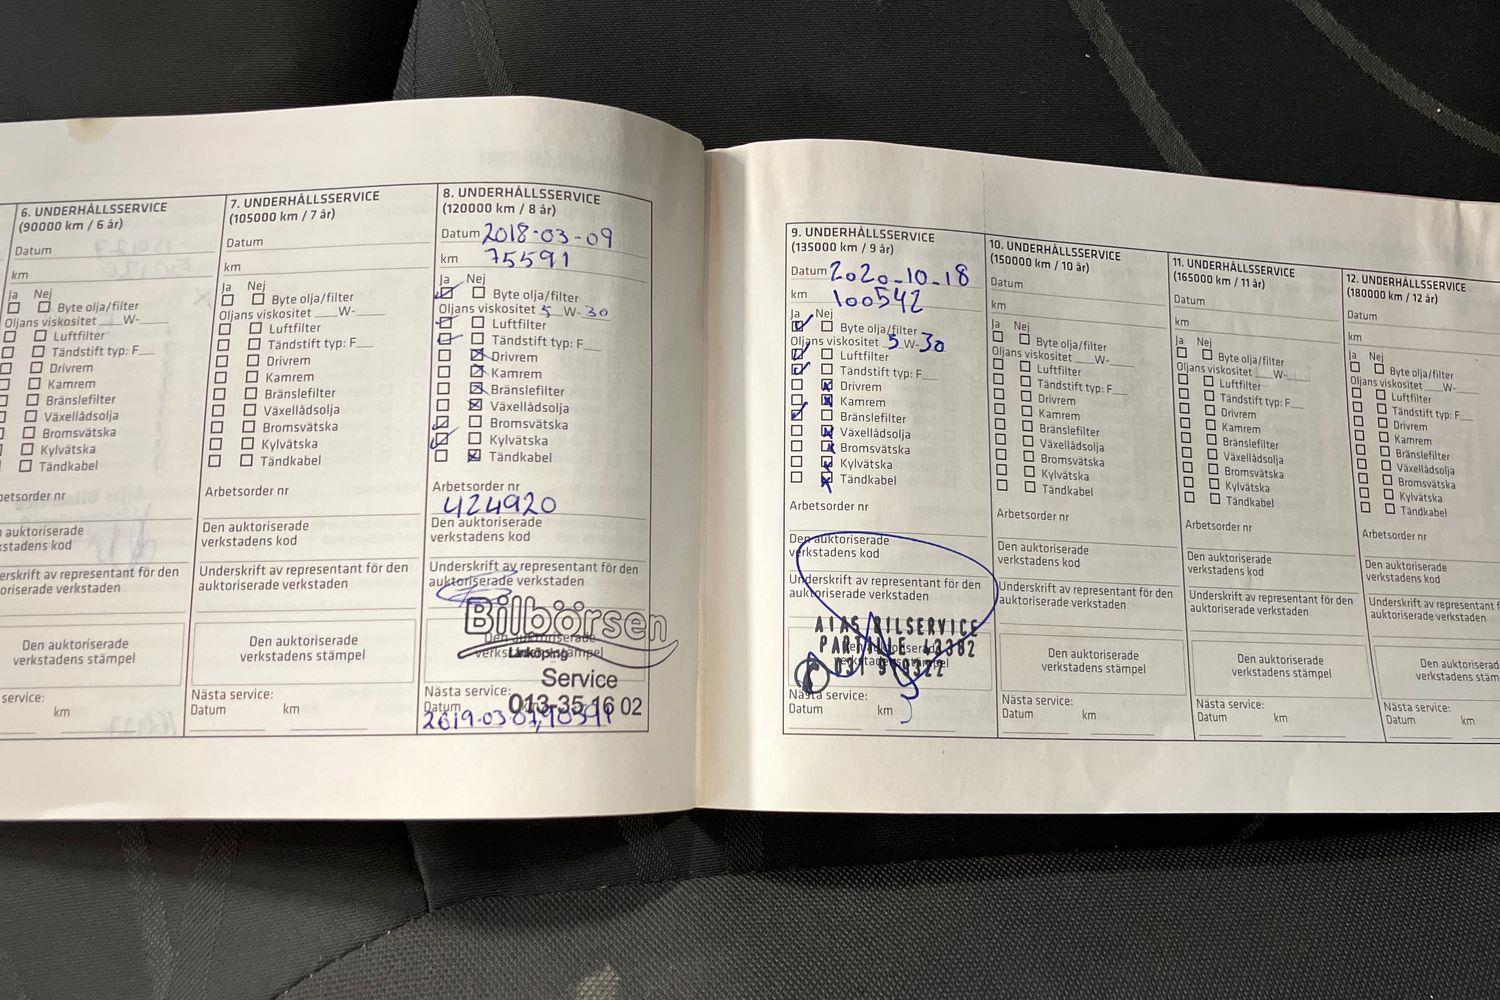 6. UNDERHÅLLSSERVICE
(90000 km / 6 år)
Datum
km
Ja Nej
Byte olja/filter
Oljans viskositet __W-____
Luftfilter
Tändstift typ: F__
Drivrem
Kamrem
Bränslefilter
Växellådsolja
Bromsvätska
Kylvätska
Tändkabel
nr
auktoriserade
kod
av representant för den
verkstaden
Den auktoriserade
verkstadens stämpel
service:
km
7. UNDERHÅLLSSERVICE
(105000 km / 7 år)
Datum
km
Ja Nej
Byte olja/filter
Oljans viskositet __W-____
Luftfilter
Tändstift typ: F__
Drivrem
Kamrem
Bränslefilter
Växellådsolja
Bromsvätska
Kylvätska
Tändkabel
Arbetsorder nr
Den auktoriserade
verkstadens kod
Underskrift av representant för den
auktoriserade verkstaden
Den auktoriserade
verkstadens stämpel
Nästa service:
Datum km
8. UNDERHÅLLSSERVICE
(120000 km / 8 år)
Datum 2018-03-09
km 75591
Ja Nej
Byte olja/filter
Oljans viskositet 5 W-30
Luftfilter
Tändstift typ: F__
Drivrem
Kamrem
Bränslefilter
Växellådsolja
Bromsvätska
Kylvätska
Tändkabel
Arbetsorder nr
424920
Den auktoriserade
verkstadens kod
Underskrift av representant för den
auktoriserade verkstaden
Bilbörsen
Den auktoriserade
verkstadens stämpel
Linköping
Service
Nästa service:
013-35 16 02
Datum
9. UNDERHÅLLSSERVICE
(135000 km / 9 år)
Datum 2020-10-18
km 100542
Ja Nej
Byte olja/filter
Oljans viskositet 5 W-30
Luftfilter
Tändstift typ: F__
Drivrem
Kamrem
Bränslefilter
Växellådsolja
Bromsvätska
Kylvätska
Tändkabel
Arbetsorder nr
Den auktoriserade
verkstadens kod
Underskrift av representant för den
auktoriserade verkstaden
BILSERVICE
PARTILLE 43382
Den auktoriserade
verkstadens stämpel
Nästa service:
Datum km
10. UNDERHÅLLSSERVICE
(150000 km / 10 år)
Datum
km
Ja Nej
Byte olja/filter
Oljans viskositet __W-____
Luftfilter
Tändstift typ: F__
Drivrem
Kamrem
Bränslefilter
Växellådsolja
Bromsvätska
Kylvätska
Tändkabel
Arbetsorder nr
Den auktoriserade
verkstadens kod
Underskrift av representant för den
auktoriserade verkstaden
Den auktoriserade
verkstadens stämpel
Nästa service:
Datum km
11. UNDERHÅLLSSERVICE
(165000 km / 11 år)
Datum
km
Ja Nej
Byte olja/filter
Oljans viskositet __W-____
Luftfilter
Tändstift typ: F__
Drivrem
Kamrem
Bränslefilter
Växellådsolja
Bromsvätska
Kylvätska
Tändkabel
Arbetsorder nr
Den auktoriserade
verkstadens kod
Underskrift av representant för den
auktoriserade verkstaden
Den auktoriserade
verkstadens stämpel
Nästa service:
Datum km
12. UNDERHÅLLSSERVICE
(180000 km / 12 år)
Datum
km
Ja Nej
Byte olja/filter
Oljans viskositet __W-
Luftfilter
Tändstift typ: F__
Drivrem
Kamrem
Bränslefilter
Växellådsolja
Bromsvätska
Kylvätska
Tändkabel
Arbetsorder nr
Den auktoriserade
verkstadens kod
Underskrift av representant f
auktoriserade verkstaden
Den auktoriserad
verkstadens stämp
Nästa service:
Datum km